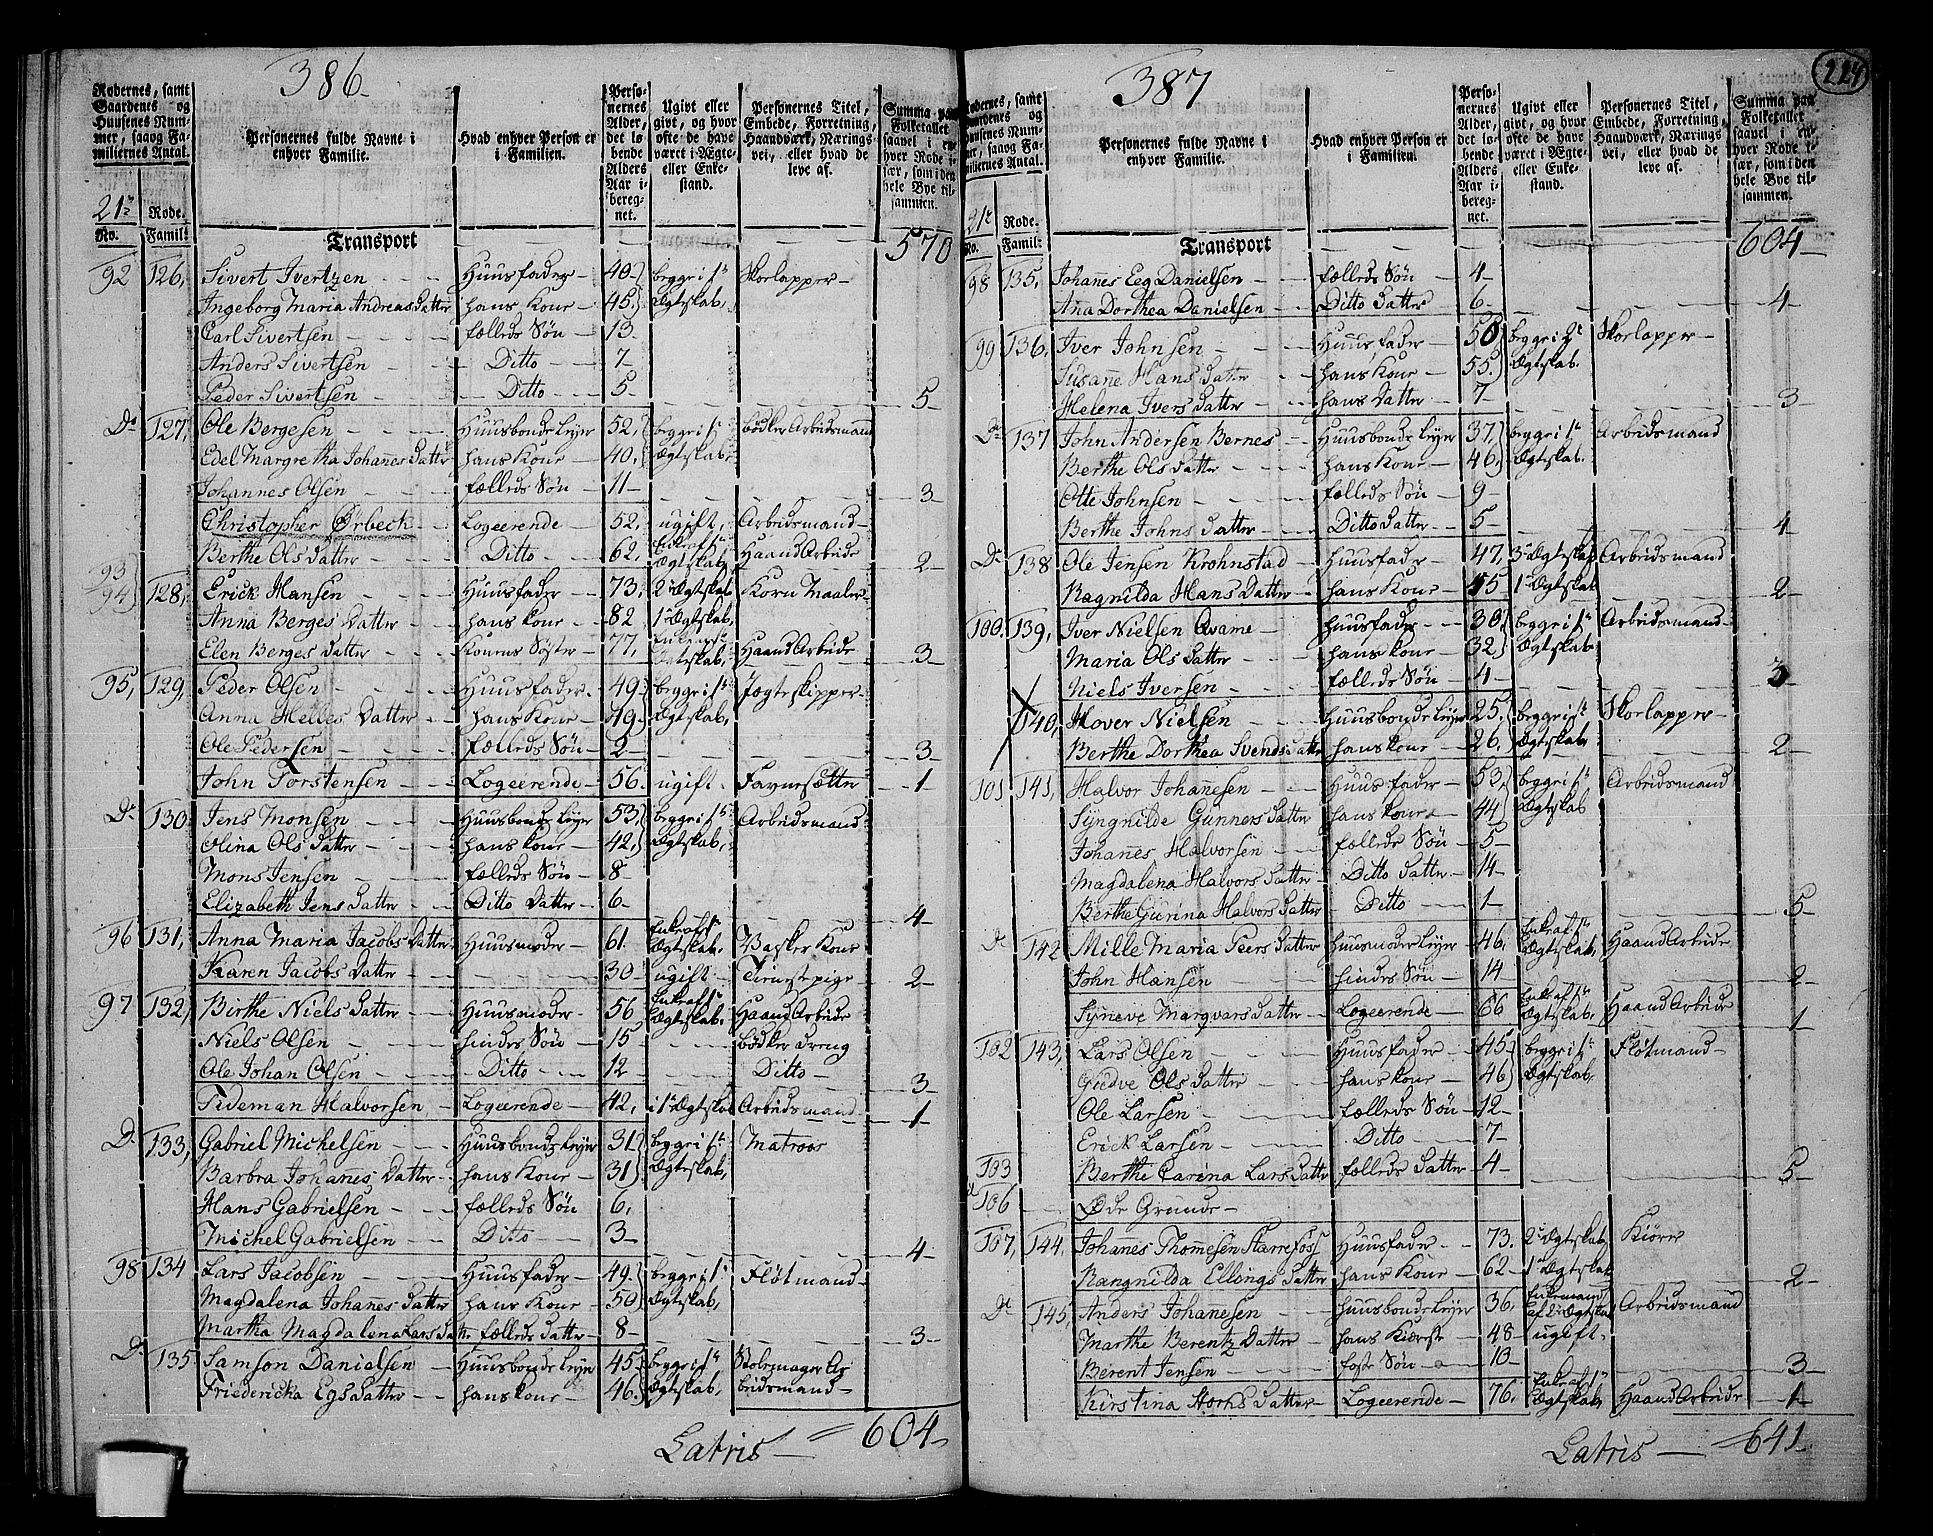 386
Rodernes, samt Gaardenes og Huusenes Nummer, saavog Familiernes Antal.
Personernes fulde Navne i enhver Familie.
Hvad enhver Person er i Familien.
Personernes Alder, det løbende Alders Aar iberegnet.
Ugivt eller givt, og hvor ofte de have været i Ægte- eller Enkestand.
Personernes Titel, Embede, Forretning, Haandværk, Nærings vei, eller hvad de leve af.
21de Rode.
No. Famil:
Transport 570
92 126, Sivert Ivertzen Huusfader 40 begge i 1te Skorlapper
Ingeborg Maria Andreas Datter hans Kone 45 Ægtskab,
Carl Sivertsen fælleds Søn 13
Anders Sivertsen Ditto 7
Peder Sivertsen Ditto 5 5
Do 127, Ole Bergesen Huusbonde Leyer 52, begge i 1te bødker Arbeidsmand
Edel Margretha Johannes Datter hans Kone 40, Ægtskab
Johannes Olsen fælleds Søn 11 3
Christopher Ørbech Logeerende 52, ugift, Arbeidsmand
Berthe Ols Datter Ditto 62, Enke af 1te Ægtskab, Haand Arbeide 2
93 94 128, Erick Hansen Huusfader 73, 2det Ægtskab Korn Maaler
Anna Berges Datter hans kone 82 1te Ægtskab,
Elen Berges Datter Konens Søster 77, Ægtskab, Haand Arbeide 3
95, 129, Peder Olsen Huusfader 49 begge i 1te Jægteskipper
Anna Helles Datter hans Kone 49 Ægtskab,
Ole Pedersen fælleds Søn 2 3
John Torstensen Logeerende 56 ugift Favnesætter 1
Do 130 Jens Monsen Huusbonde Leyer 53, begge i 1te Arbeidsmand
Olina Ols Datter hans kone 42, Ægtskab,
Mons Jensen fælleds Søn 8
Elizabeth Jens Datter Ditto Datter 6 4
96 131, Anna Maria Jacobs Datter Huusmoder 61 Enke af 1te Ægtskab Vasker Kone
Karen Jacobs Datter 30 ugift Tieneste pige 2
97 132, Birthe Niels Datter Huusmoder 56 Enke af 1te Ægtskab. Haand Arbeide
Niels Olsen hindes Søn 15 bødker dreng
Ole Johan Olsen Ditto 12 Ditto 3
Tideman Halvorsen Logeerende 42, i 1te Ægtskab Arbeidsmand 1
Do 133, Gabriel Michelsen Huusbonde Leyer 31 begge i 1te Matroos
Barbra Johannes Datter hans Kone 31 Ægtskab,
Hans Gabrielsen fælleds Søn 6,
Michel Gabrielsen Ditto 3 4
98 134 Lars Jacobsen Huusfader 49 begge i 1te Fløtmand
Magdalena Johannes Datter hans Kone 50 Ægtskab,
Martha Magdalena Lars Datter fælleds Datter 8 3
Do 135 Samson Danielsen Huusbonde Leyer 45 begge i 1te Stolemager Ar
Friedericka Egs Datter hans kone 46 Ægtskab, beidsmand
Latris 604
387
224
Personernes fulde Navne i enhver Familie.
Hvad enhver Person er i Familien.
Personernes Alder, det løbende Alders Aar iberegnet.
Ugivt eller givt, og hvor ofte de have været i Ægte- eller Enkestand.
Personernes Titel, Embede, Forretning, Haandværk, Nærings vei, eller hvad de leve af.
21de Rode.
No. Famil:
Transport 604
98 135, Johannes Eeg Danielsen fælleds Søn 4
Ana Dorthea Danielsen Ditto Datter 6 4
99 136, Iver Johnsen Huusfader 50 begge i 2det Skorlapper
Susanne Hans Datter hans Kone 55 Ægtskab.
Helena Ivers Datter hans Datter 7 3
Do 137 John Andersen Bernes Huusbonde Leyer 37, begge i 1te Arbeidsmand
Berthe Ols Datter hans Kone 46, Ægtskab.
Otte Johnsen fælleds Søn 9
Berthe Johns Datter Ditto Datter 5 4
Do 138 Ole Jensen Krohnstad Huusfader 47, 3die Ægtskab Arbeidsmand
Ragnilda Hans Datter hans Kone 45 1te Ægtskab 2
100 139, Iver Nielsen Qvame huusfader 30 begge i 1te Arbeidsmand
Maria Ols Datter hans kone 32 Ægtskab
Niels Iversen fælleds Søn 4 3
140, Hover Nielsen huusbonde Leyer 25 begge i 1te Skorlapper
Berthe Dorthea Svends Datter hans kone 26, Ægtskab 2
101 141, Halvor Johannesen Huusfader 53, begge i 1te Arbeidsmand
Syngnilde Gunners Datter hans kone 44 Ægtskab
Johannes Halvorsen fælleds Søn 5
Magdalena Halvors Datter Ditto Datter 14
Berthe Giurina Halvors Datter Ditto 1 5
Do 142 Mille Maria Peers Datter huusmoder Leyer 46, Enke af 1te Ægtskab, Haand Arbeide
John Hansen hindes Søn 14 2
Syneve Marqvars Datter Logeerende 66 Enke af 1te Ægtskab, Haand Arbeide 1
102 143, Lars Olsen Huusfader 45 begge i 1te Fløtmand
Giedve Ols Datter hans kone 46 Ægtskab,
Ole Larsen fælleds Søn 12
Erick Larsen Ditto 7
103 Berthe Carina Lars Datter fælleds Datter 4 5
106 Øde Grunde
107, 144, Johannes Thomesen Starrefoss Huusfader 73. 2det Ægtskab, Kiører
Rangnilda Ellings Datter hans Kone 62 1te Ægtskab 2
Do 145, Anders Johanesen huusbonde Leyer 36, Enkemand Arbeidsmand
Marthe Berentz Datter hans Kiæreste 48 ugift.
Berent Jensen foste Søn 10 3
Kirstina Horks Datter Logeerende 76, Enke af 1te Ægtskab Haand Arbeide 1
Latris 641